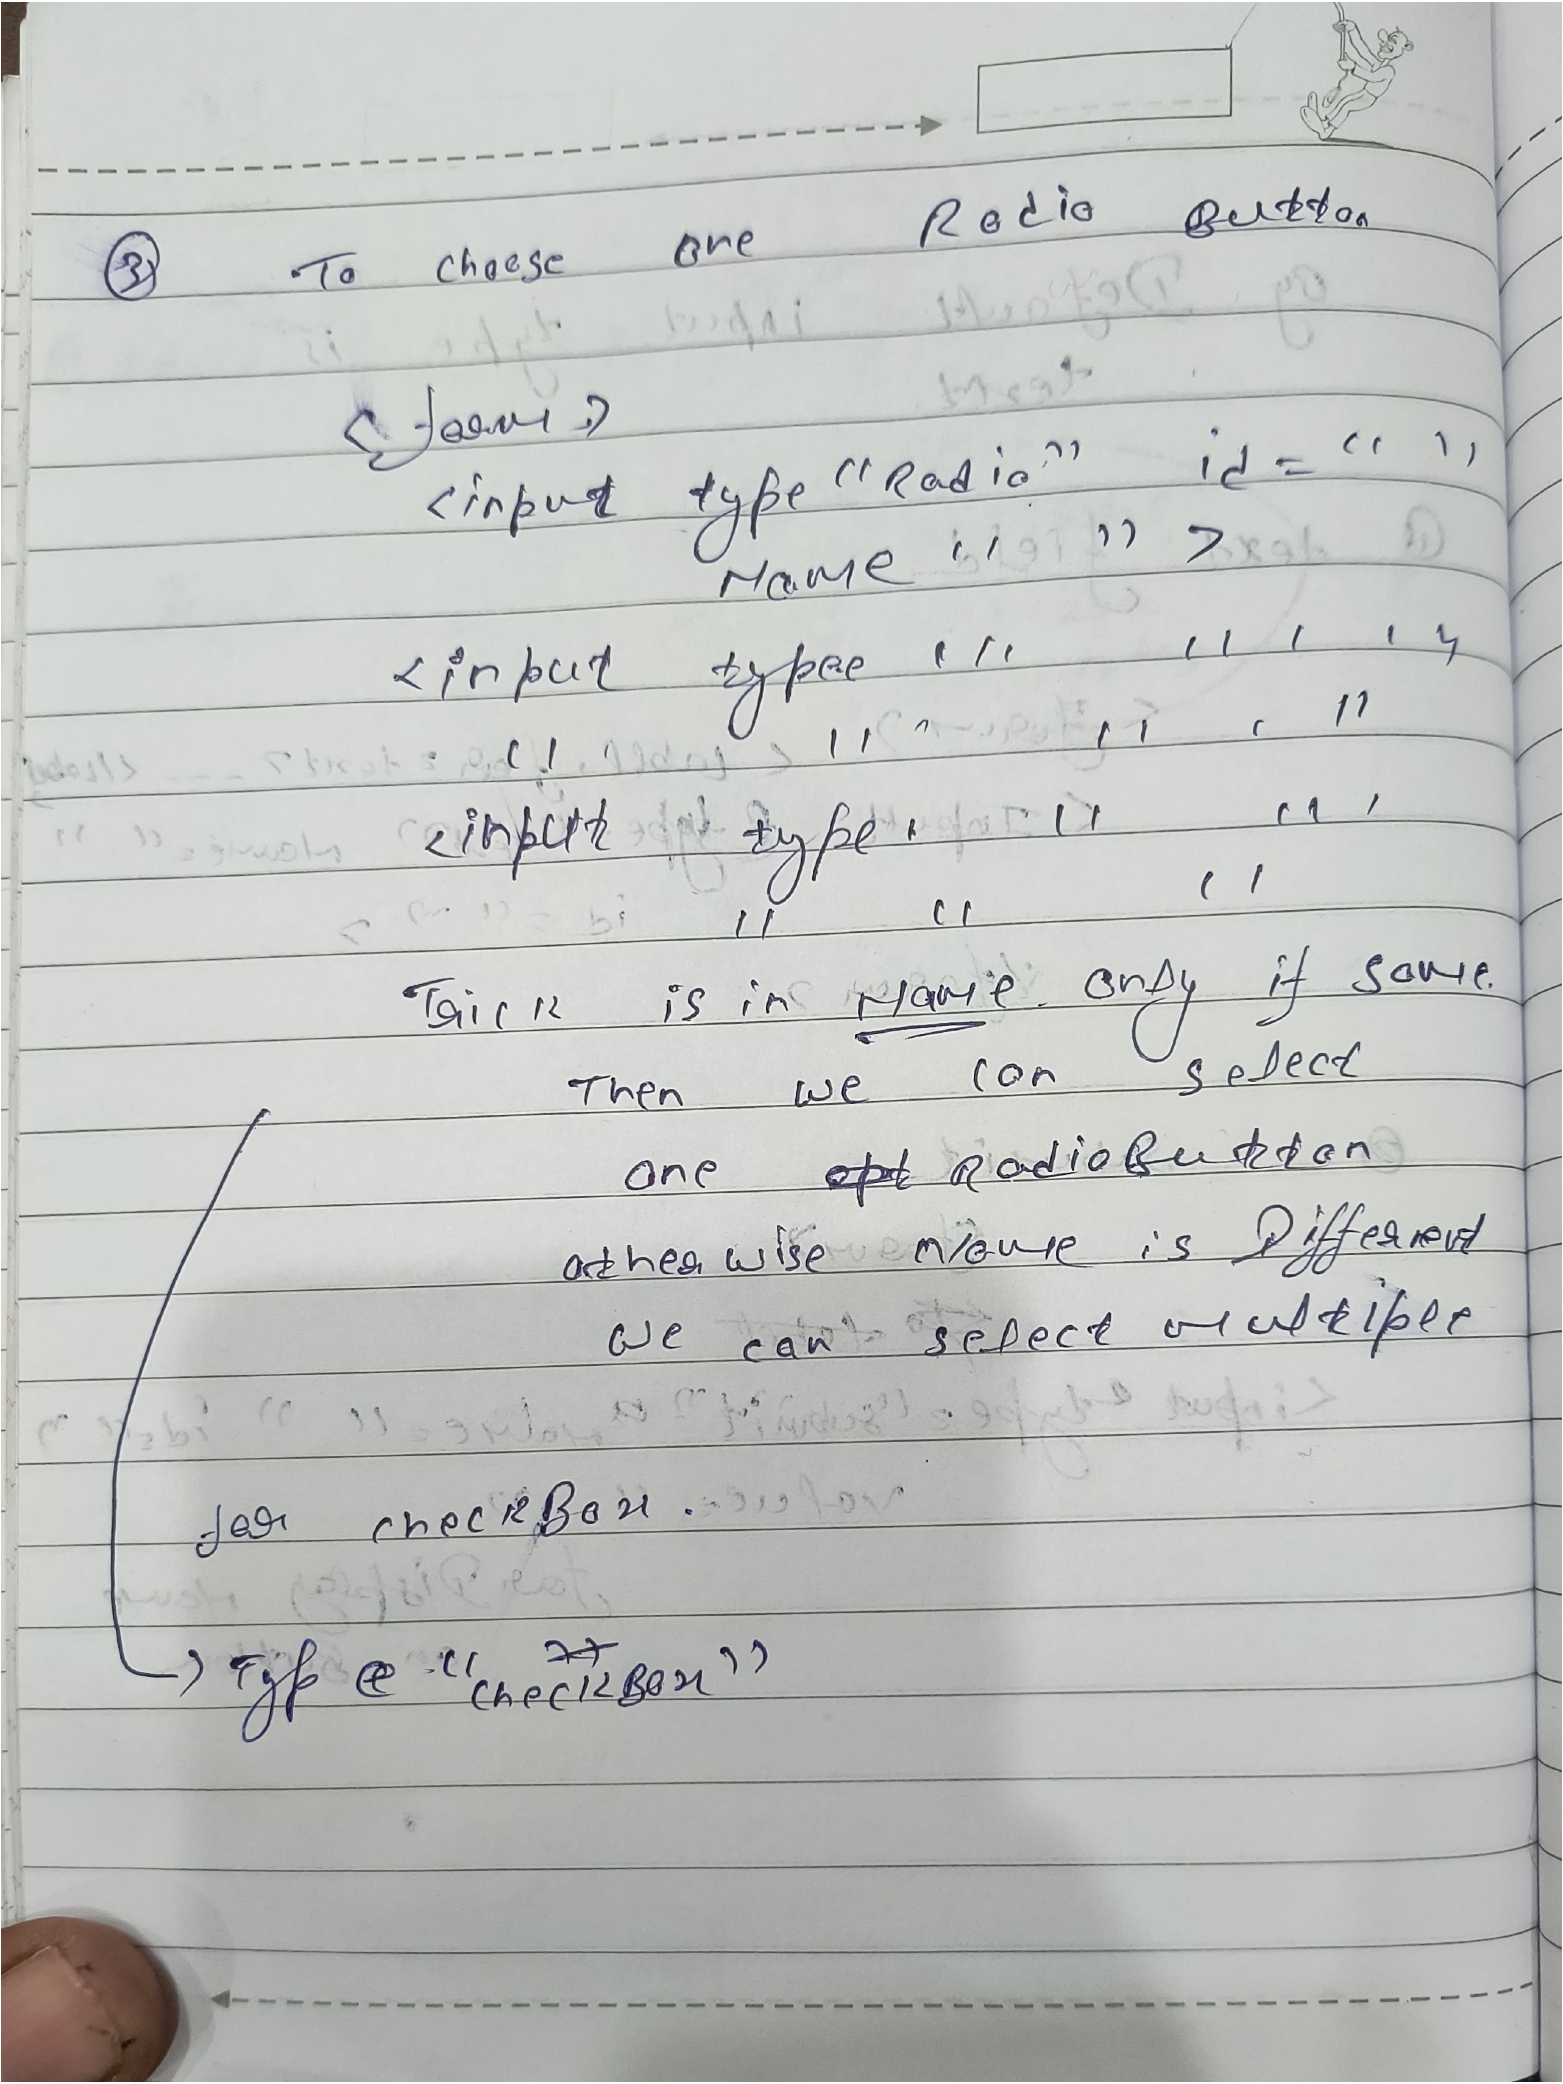 ③ To choose one Radio Button
<form>
<input type "Radio" id = " "
Name " " >
<input type
" " " " "
<input type " "
" " "
Trick is in Name only if same.
Then we can select
one opt Radio Button
otherwise name is Different
we can select multiple
for checkBox.
→ Type "checkBox"